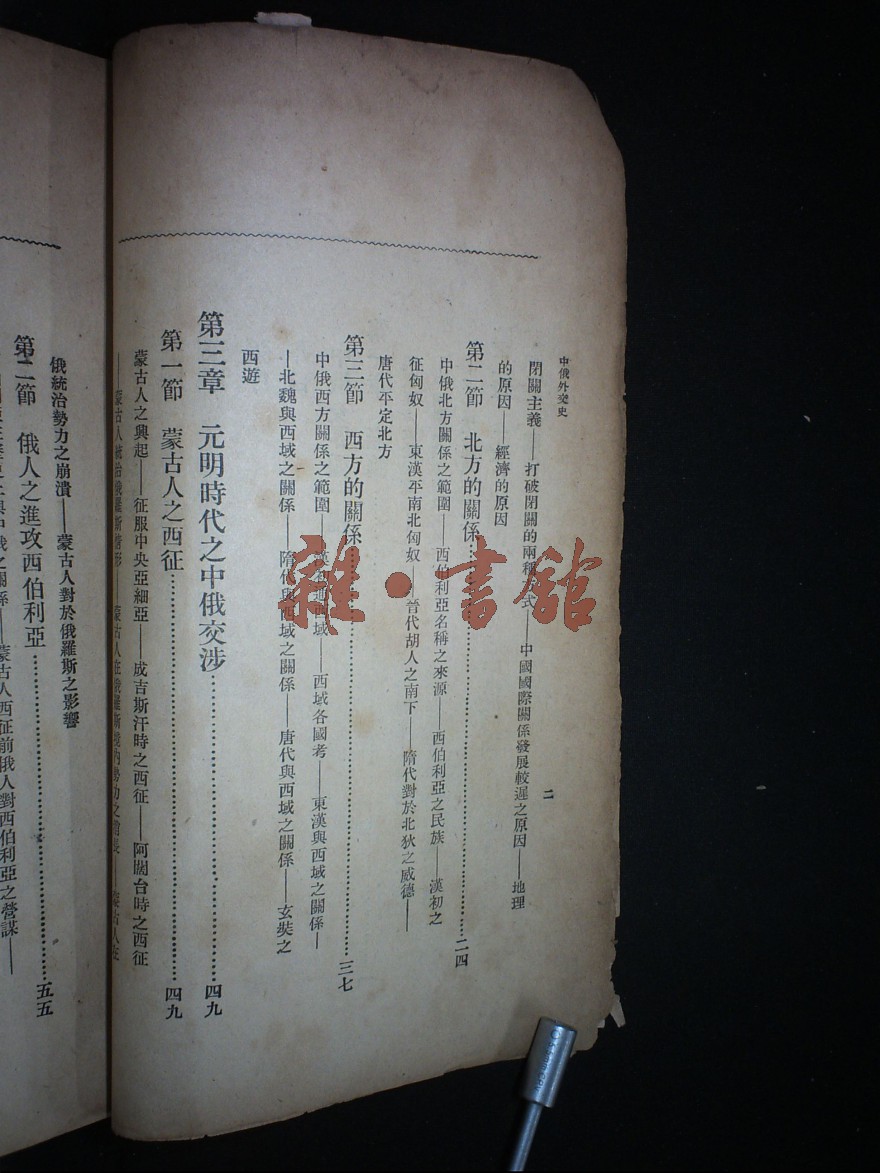 中俄外交史
二
閉關主義——打破閉關的兩種 式——中國國際關係發展較遲之原因——地理
的原因——經濟的原因
第二節 北方的關係……二四
中俄北方關係之範圍——西伯利亞名稱之來源——西伯利亞之民族——漢初之
征匈奴——東漢平南北匈奴——晉代胡人之南下——隋代對於北狄之威德——
唐代平定北方
第三節 西方的關係……三七
中俄西方關係之範圍——漢初通西域——西域各國考——東漢與西域之關係—
—北魏與西域之關係——隋代與西域之關係——唐代與西域之關係——玄奘之
西遊
第三章 元明時代之中俄交涉……四九
第一節 蒙古人之西征……四九
蒙古人之興起——征服中央亞細亞——成吉斯汗時之西征——阿闊台時之西征
——蒙古人統治俄羅斯情形——蒙古人在俄羅斯境內勢力之消長——蒙古人在
俄統治勢力之崩潰——蒙古人對於俄羅斯之影響
第二節 俄人之進攻西伯利亞……五五
與中俄之關係——蒙古人西征前俄人對西伯利亞之營謀——
雜·書館